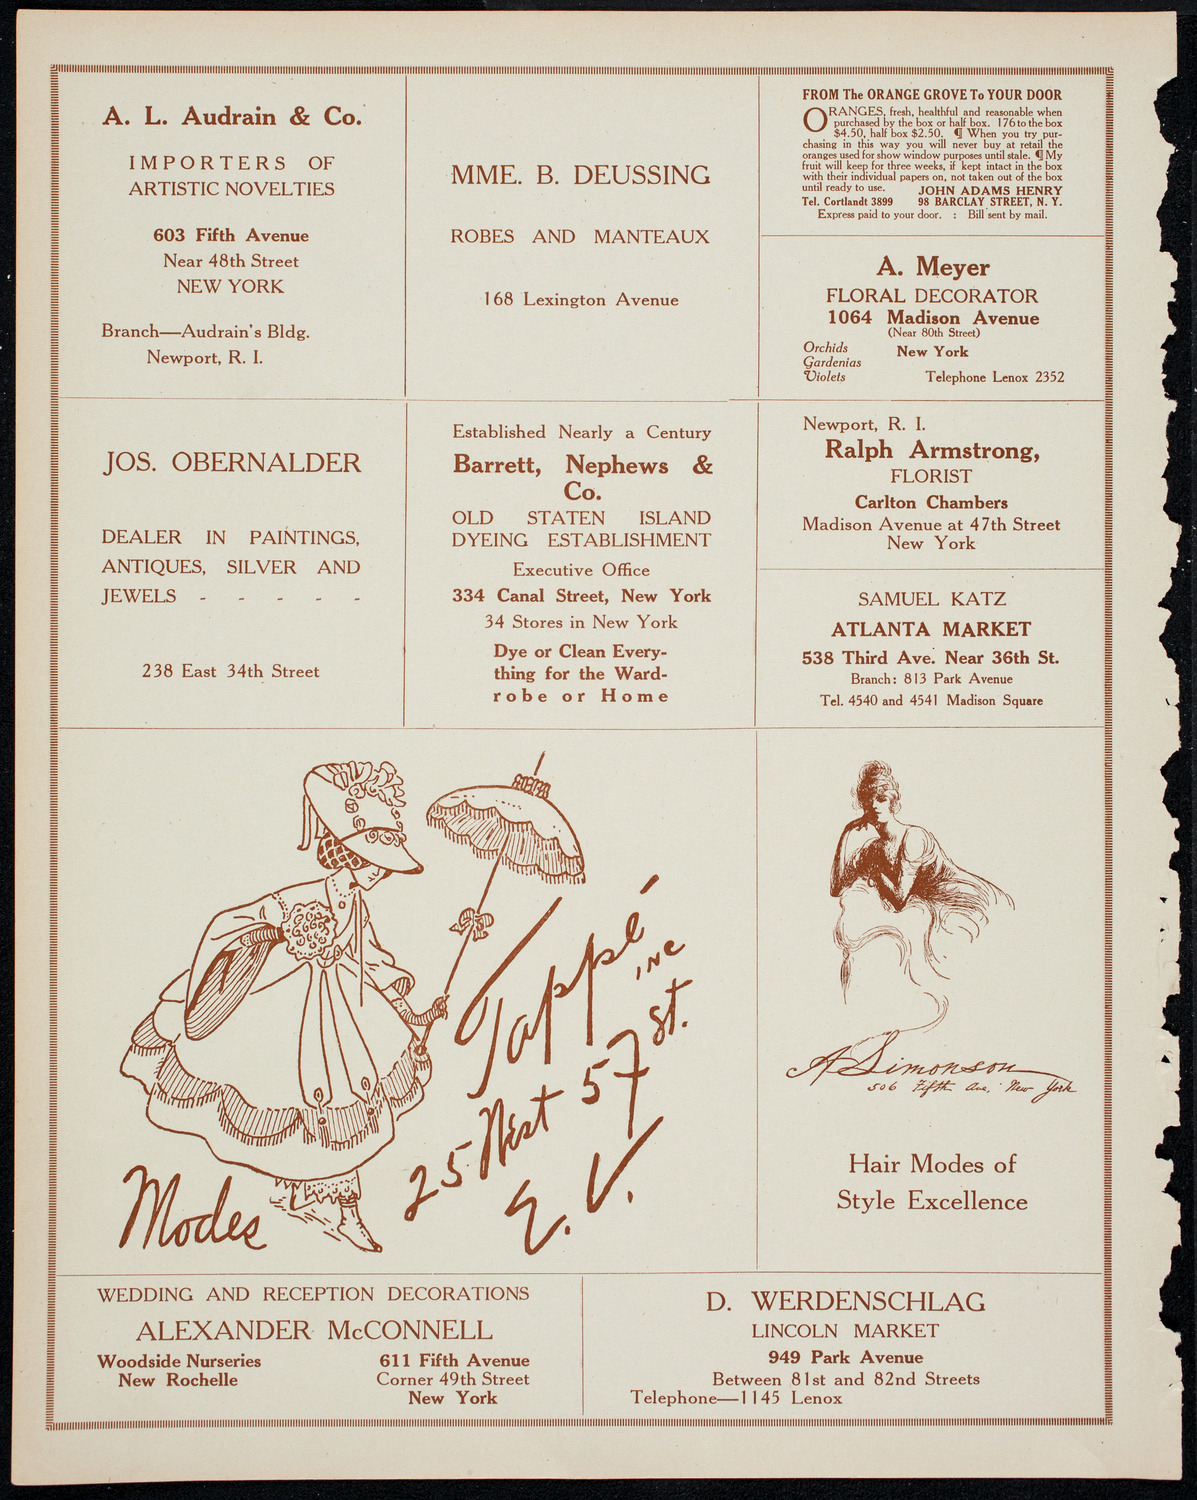 A. L. Audrain & Co.
IMPORTERS OF
ARTISTIC NOVELTIES
603 Fifth Avenue
Near 48th Street
NEW YORK
Branch—Audrain's Bldg.
Newport, R. I.
MME. B. DEUSSING
ROBES AND MANTEAUX
168 Lexington Avenue
FROM The ORANGE GROVE To YOUR DOOR
ORANGES, fresh, healthful and reasonable when
purchased by the box or half box. 176 to the box
$4.50, half box $2.50. ¶ When you try pur-
chasing in this way you will never buy at retail the
oranges used for show window purposes until stale. ¶ My
fruit will keep for three weeks, if kept intact in the box
with their individual papers on, not taken out of the box
until ready to use. JOHN ADAMS HENRY
Tel. Cortlandt 3899 98 BARCLAY STREET, N. Y.
Express paid to your door. : Bill sent by mail.
A. Meyer
FLORAL DECORATOR
1064 Madison Avenue
(Near 80th Street)
Orchids
Gardenias
Violets
New York
Telephone Lenox 2352
JOS. OBERNALDER
DEALER IN PAINTINGS,
ANTIQUES, SILVER AND
JEWELS - - - - -
238 East 34th Street
Established Nearly a Century
Barrett, Nephews &
Co.
OLD STATEN ISLAND
DYEING ESTABLISHMENT
Executive Office
334 Canal Street, New York
34 Stores in New York
Dye or Clean Every-
thing for the Ward-
robe or Home
Newport, R. I.
Ralph Armstrong,
FLORIST
Carlton Chambers
Madison Avenue at 47th Street
New York
SAMUEL KATZ
ATLANTA MARKET
538 Third Ave. Near 36th St.
Branch: 813 Park Avenue
Tel. 4540 and 4541 Madison Square
Tappé
INC
25 West 57 St.
Modes
A Simonson
506 Fifth Ave. New York
Hair Modes of
Style Excellence
WEDDING AND RECEPTION DECORATIONS
ALEXANDER McCONNELL
Woodside Nurseries
New Rochelle
611 Fifth Avenue
Corner 49th Street
New York
D. WERDENSCHLAG
LINCOLN MARKET
949 Park Avenue
Between 81st and 82nd Streets
Telephone—1145 Lenox